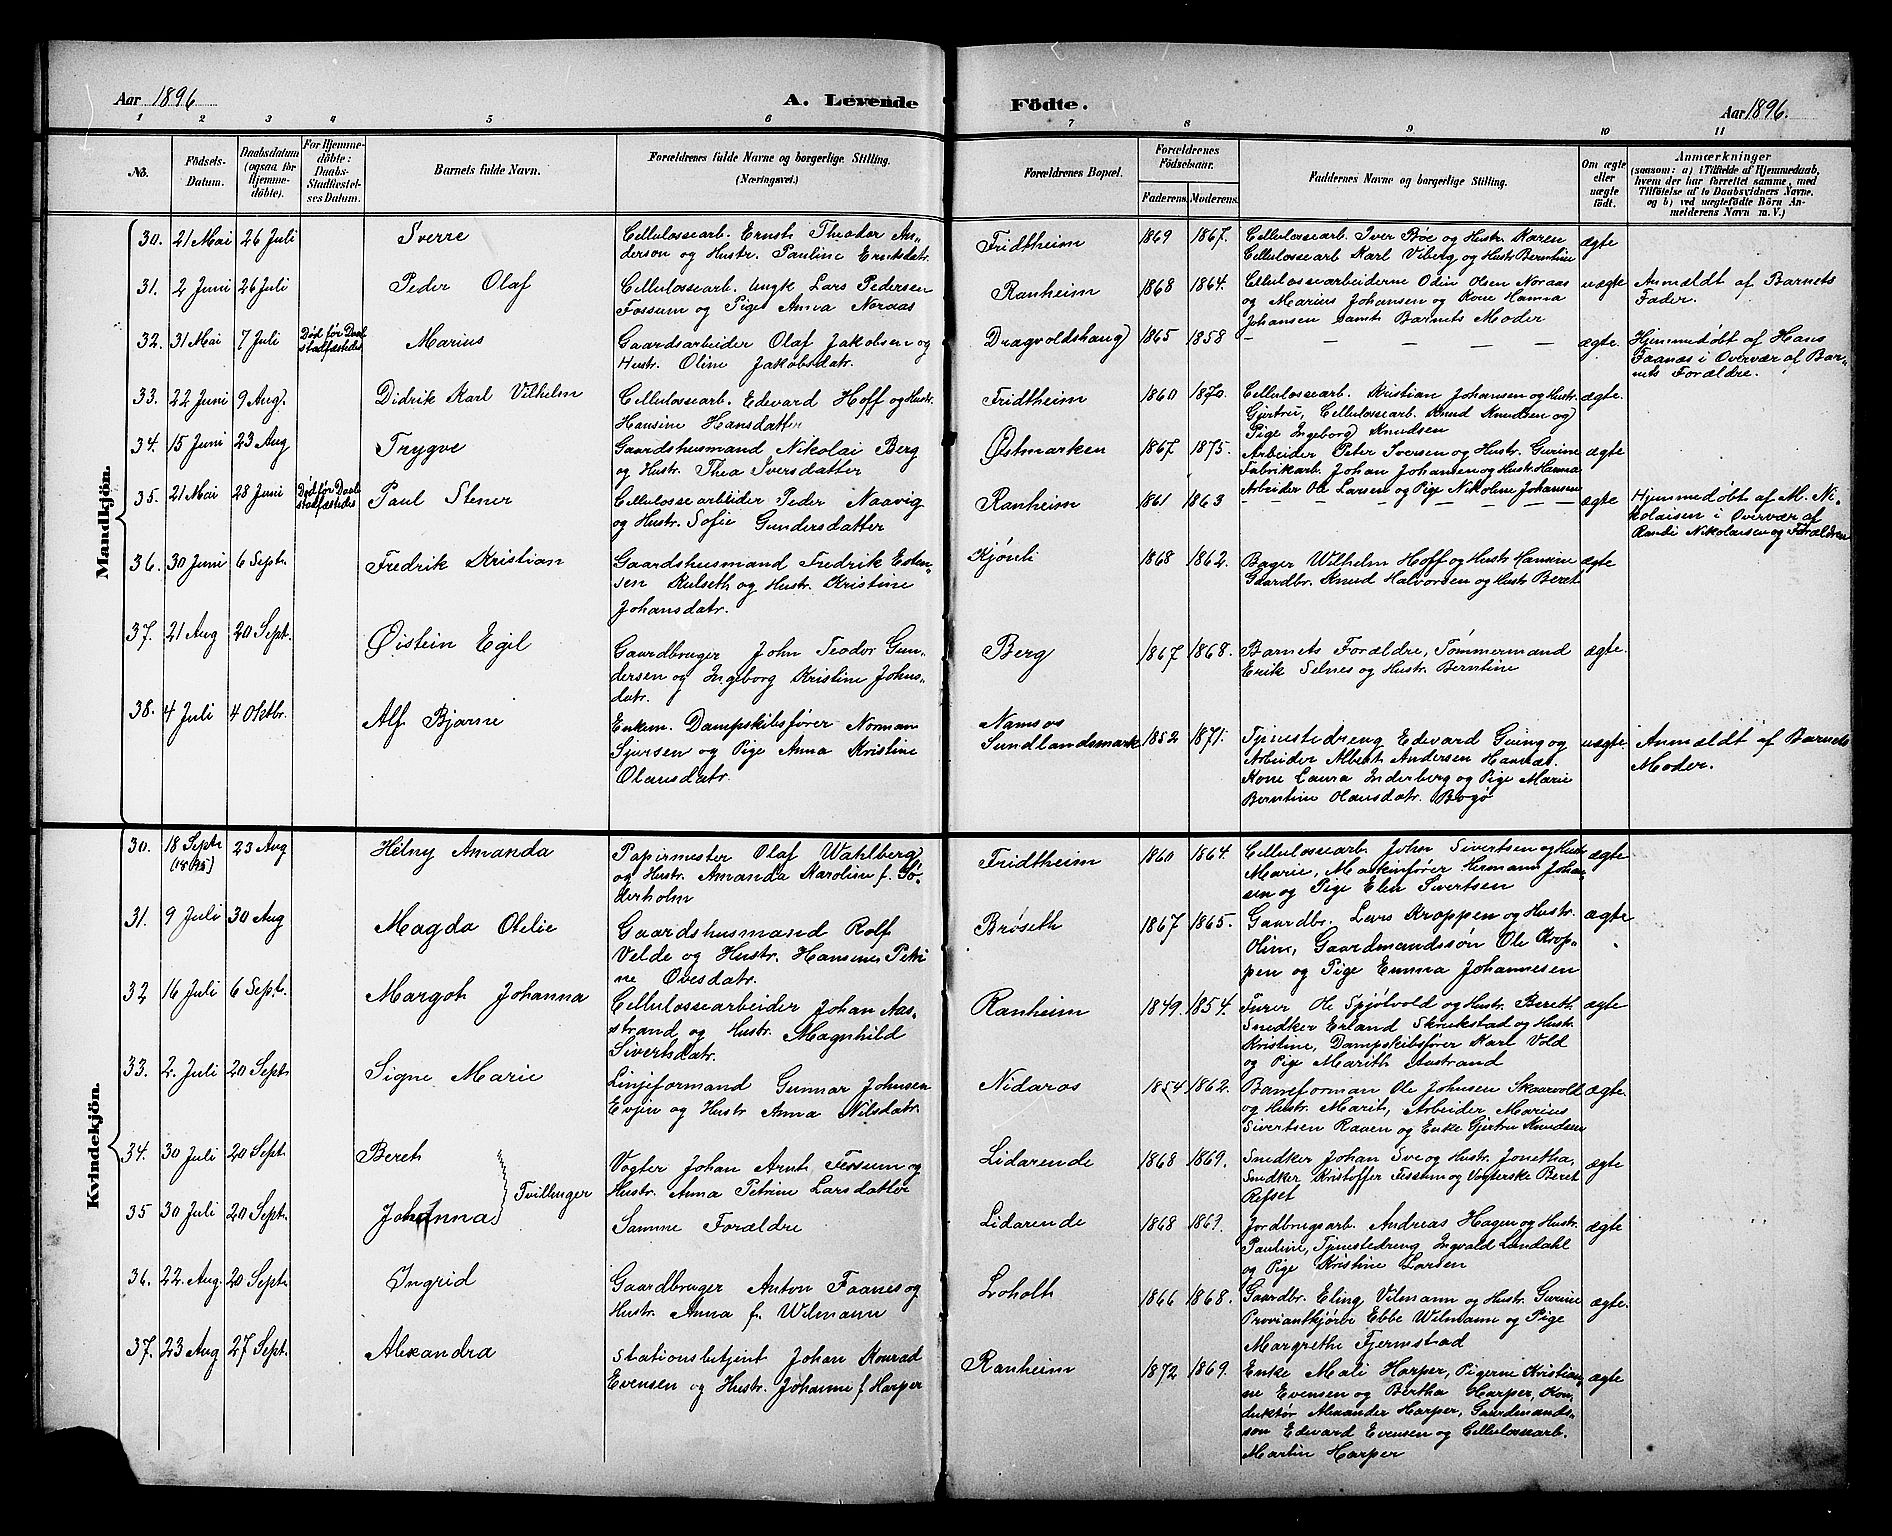 Aar 1896
A. Levende
Födte.
Aar 1896.
1 2 3 4 5 6 7 8 9 10 11
No.
Födsels-Datum.
Daabsdatum (ogsaa for Hjemme-döbte).
For Hjemme-döbte: Daabs-Stadfæstel-ses Datum.
Barnets fulde Navn.
Forældrenes fulde Navne og borgerlige Stilling.
(Næringsvei.)
Forældrenes Bopæl.
Forældrenes Födselsaar.
Faderens. Moderens.
Faddernes Navne og borgerlige Stilling.
Om ægte eller uægte födt.
Anmærkninger
(saasom: a) i Tilfælde af Hjemmedaab,
hvem der har forrettet samme, med
Tilföielse af to Daabsvidners Navne,
og b) ved uægtefödte Börn An-
melderens Navn m. V.)
Mandkjön.
30. 21 Mai 26 Juli Sverre
Cellulossearb. Ernst Theodor An-
derson og Hustr. Pauline Eriksdatr.
Fridtheim 1869 1867.
Cellulossearb. Iver Bøe og Hustr. Karen
Cellulossearb Karl Viberg og Hustr Berntine
ægte
31. 2 Juni 26 Juli Peder Olaf
Cellulossearb. Ungk Lars Pedersen
Fossum og Pige Anna Noraas
Ranheim 1868 1864.
Cellulossearbeiderne Odin Olsen Noraas
og Marius Johansen og Kone Hanna
Johansen samt Barnets Moder
uægte
Anmældt af Barnets
Fader.
32. 31 Mai 7 Juli Død før Daab
stadfæstides
Marius
Gaardsarbeider Olaf Jakobsen og
Hustr. Oline Jakobsdatr.
Dragvoldshaug 1865 1858
— — — — — —
ægte.
Hjemmedøbt af Hans
Faanæs i Overvær af Bar-
nets Forældre.
33. 22 Juni 9 Aug. Didrik Karl Vilhelm
Cellulossearb. Edevard Hoff og Hustr.
Hansine Hansdatter
Fridtheim 1860 1870.
Cellulossearb. Kristian Johansen og Hustr.
Gjertru, Cellulossearb. Knud Knudsen og
Pige Ingeborg Knudsen
ægte.
34. 15 Juni 23 Aug Trygve
Gaardshusmand Nikolai Berg
og Hustr. Thea Iversdatter
Østmarken 1867 1875.
Arbeider Peter Iversen og Hustr. Gurine
Fabrikarb. Johan Johansen og Hustr. Hanna
Arbeider Ole Larsen og Pige Nikoline Johansen
ægte
35. 21 Mai 28 Juni Død før Daab
stadfæstides
Paul Stener
Cellulossearbeider Peder Naavig
og Hustr. Sofie Gundersdatter
Ranheim 1861 1863
— — — — — —
ægte
Hjemmedøbt af M. Ni-
kolaisen i Overvær af
Randi Nikolaisen og Forældren
36. 30 Juni 6 Septr. Fredrik Kristian
Gaardshusmand Fredrik Esten-
sen Rulseth og Hustr. Kristine
Johansdatr.
Kjønli 1868 1862.
Bager Wilhelm Hoff og Hustr Hansine
Gaardbr. Knud Halvorsen og Hustr Beret
ægte
37. 21 Aug 20 Sept. Øistein Egil
Gaardbruger John Teodor Gun-
dersen og Ingeborg Kristine Johns-
datr.
Berg 1867 1868.
Barnets Forældre, Tømmermand
Erik Selnes og Hustr. Berntine
ægte.
38. 4 Juli 4 Oktbr. Alf Bjarne
Enkem. Dampskibsfører Norman
Sjursen og Pige Anna Kristine
Olausdatr.
Namsos
Sundlandsmark 1852 1871.
Tjenestedreng Edevard Guing og
Arbeider Albert Andersen Hannæs.
Kone Laura Inderberg og Pige Marie
Berntine Olausdatr. Bogø
uægte.
Anmældt af Barnets
Moder.
Kvindekjön.
30. 18 Septr (1895) 23 Aug Helny Amanda
Papirmester Olaf Wahlberg
og Hustr. Amanda Karoline f. Sö-
derholm
Fridtheim 1860 1864.
Cellulossearb. John Sivertsen og Hustr
Marie, Maskinfører Hermann Johan-
sen og Pige Elen Sivertsen
ægte
31. 9 Juli 30 Aug Magda Otelie
Gaardshusmand Rolf
Velde og Hustr. Hansine Petri
ne Ovesdatr.
Brøseth 1867 1865.
Gaardbr. Lars Kroppen og Hustr.
Oline, Gaardmandssøn Ole Krop-
pen og Pige Emma Johannesen
ægte
32 16 Juli 6 Sept. Margoth Johanna
Cellulossearbeider Johan Aas-
strand og Hustr. Magnhild
Sivertsdatr.
Ranheim 1849 1854.
Furer Ole Spjøtvold og Hustr. Bereth
Snedker Erland Skrukstad og Hustr.
Kristine, Dampskibsfører Karl Vold
og Pige Marith Austrand
ægte
33. 2. Juli 20 Sept. Signe Marie
Linjeformand Gunnar Johnsen
Evjen og Hustr Anna Nilsdatr.
Nidaros 1854 1862.
Baneforman Ole Johnsen Skaarvold
og Hustr. Marit, Arbeider Marius
Sivertsen Raaen og Enke Gjertru Knudsen
ægte.
34. 30 Juli 20 Sept. Bereth
Tvillinger
Vogter Johan Arnt Fossum og
Hustr. Anna Petrine Larsdatter
Lidarende 1868 1869.
Snedker Johan Sve og Hustr. Jonetha,
Snedker Kristoffer Fossum og Vogterske Beret
Refset
ægte
35 30 Juli 20 Sept. Johanna
Samme Forældre
Lidarende 1868 1869.
Jordbrugsarb. Andreas Hagen og Hustr.
Pauline, Tjenestedreng Ingvald Lundahl
og Pige Kristine Larsen
ægte
36. 22. Aug. 20 Sept. Ingrid
Gaardbruger Anton Faanes og
Hustr. Anna f. Wilmann
Loholt 1866 1868.
Gaardbr. Eling Vilmann og Hustr. Gurine
Proviantkjørbe Ebbe Wilmann og Pige
Margrethe Fjermstad
ægte.
37. 23 Aug 27 Sept. Alexandra
Stationsbetjent Johan Konrad
Evensen og Hustr. Johanne f. Harper
Ranheim 1872 1869.
Enke Mali Harper, Pigerne Kristian-
ne Evensen og Bertha Harper, Kon-
duktør Alexander Harper, Gaardmands-
søn Edevard Evensen og Cellulossearb.
Martin Harper
ægte